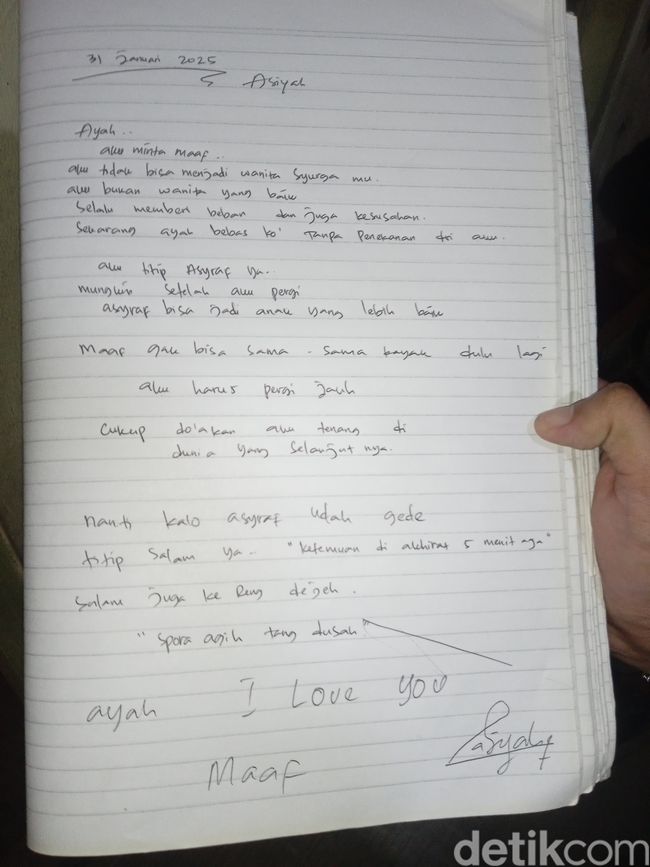 31 Januari 2025
Asiyah
Ayah..
aku minta maaf..
aku tidak bisa menjadi wanita syurga mu.
aku bukan wanita yang baik
selalu memberi beban dan juga kesusahan.
Sekarang ayah bebas ko' tanpa penekanan dri aku.
aku titip Asyraf ya..
mungkin setelah aku pergi
asyraf bisa jadi anak yang lebih baik
Maaf gak bisa sama - sama kayak dulu lagi
aku harus pergi jauh
Cukup do'akan aku tenang di
dunia yang selanjutnya.
nanti kalo asyraf udah gede
titip salam ya. "ketemuan di akhirat 5 menit aja"
salam juga ke Reng dejeh.
"spora agih tang dusah"
ayah I Love you
Maaf
detikcom